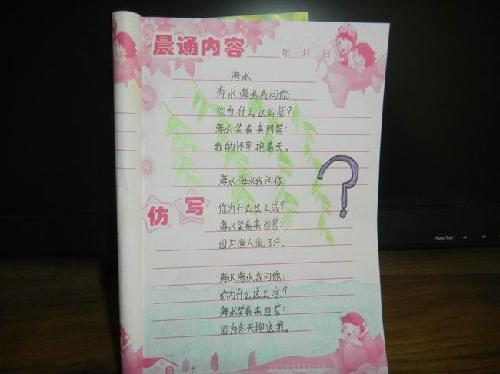 晨诵内容
年 月 日
海水
海水海水我问你:
你为什么这么蓝?
海水笑着来回答:
我的怀里抱着天。
海水海水我问你:
仿写
你为什么这么咸?
海水笑着来回答:
因为渔人流了汗。
海水海水我问你:
你为什么这么凉?
海水笑着来回答:
因为冬天抱过我。
?